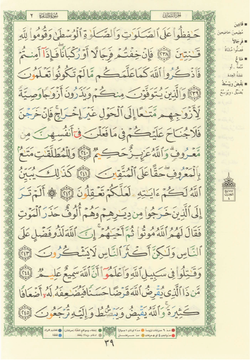 حَـٰفِظُوا۟ عَلَى ٱلصَّلَوَٰتِ وَٱلصَّلَوٰةِ ٱلْوُسْطَىٰ وَقُومُوا۟ لِلَّهِ
قَـٰنِتِينَ ٢٣٨ فَإِنْ خِفْتُمْ فَرِجَالًا أَوْ رُكْبَانًا فَإِذَآ أَمِنتُمْ
فَٱذْكُرُوا۟ ٱللَّهَ كَمَا عَلَّمَكُم مَّا لَمْ تَكُونُوا۟ تَعْلَمُونَ
٢٣٩ وَٱلَّذِينَ يُتَوَفَّوْنَ مِنكُمْ وَيَذَرُونَ أَزْوَٰجًا وَصِيَّةً
لِّأَزْوَٰجِهِم مَّتَـٰعًا إِلَى ٱلْحَوْلِ غَيْرَ إِخْرَاجٍ فَإِنْ خَرَجْنَ
فَلَا جُنَاحَ عَلَيْكُمْ فِى مَا فَعَلْنَ فِىٓ أَنفُسِهِنَّ مِن
مَّعْرُوفٍ وَٱللَّهُ عَزِيزٌ حَكِيمٌ ٢٤٠ وَلِلْمُطَلَّقَـٰتِ مَتَـٰعٌۢ
بِٱلْمَعْرُوفِ حَقًّا عَلَى ٱلْمُتَّقِينَ ٢٤١ كَذَٰلِكَ يُبَيِّنُ
ٱللَّهُ لَكُمْ ءَايَـٰتِهِۦ لَعَلَّكُمْ تَعْقِلُونَ ٢٤٢ أَلَمْ تَرَ
إِلَى ٱلَّذِينَ خَرَجُوا۟ مِن دِيَـٰرِهِمْ وَهُمْ أُلُوفٌ حَذَرَ ٱلْمَوْتِ
فَقَالَ لَهُمُ ٱللَّهُ مُوتُوا۟ ثُمَّ أَحْيَـٰهُمْ إِنَّ ٱللَّهَ لَذُو فَضْلٍ عَلَى
ٱلنَّاسِ وَلَـٰكِنَّ أَكْثَرَ ٱلنَّاسِ لَا يَشْكُرُونَ ٢٤٣
وَقَـٰتِلُوا۟ فِى سَبِيلِ ٱللَّهِ وَٱعْلَمُوٓا۟ أَنَّ ٱللَّهَ سَمِيعٌ عَلِيمٌ ٢٤٤
مَّن ذَا ٱلَّذِى يُقْرِضُ ٱللَّهَ قَرْضًا حَسَنًا فَيُضَـٰعِفَهُۥ لَهُۥٓ أَضْعَافًا
كَثِيرَةً وَٱللَّهُ يَقْبِضُ وَيَبْصُۜطُ وَإِلَيْهِ تُرْجَعُونَ ٢٤٥
٣٩